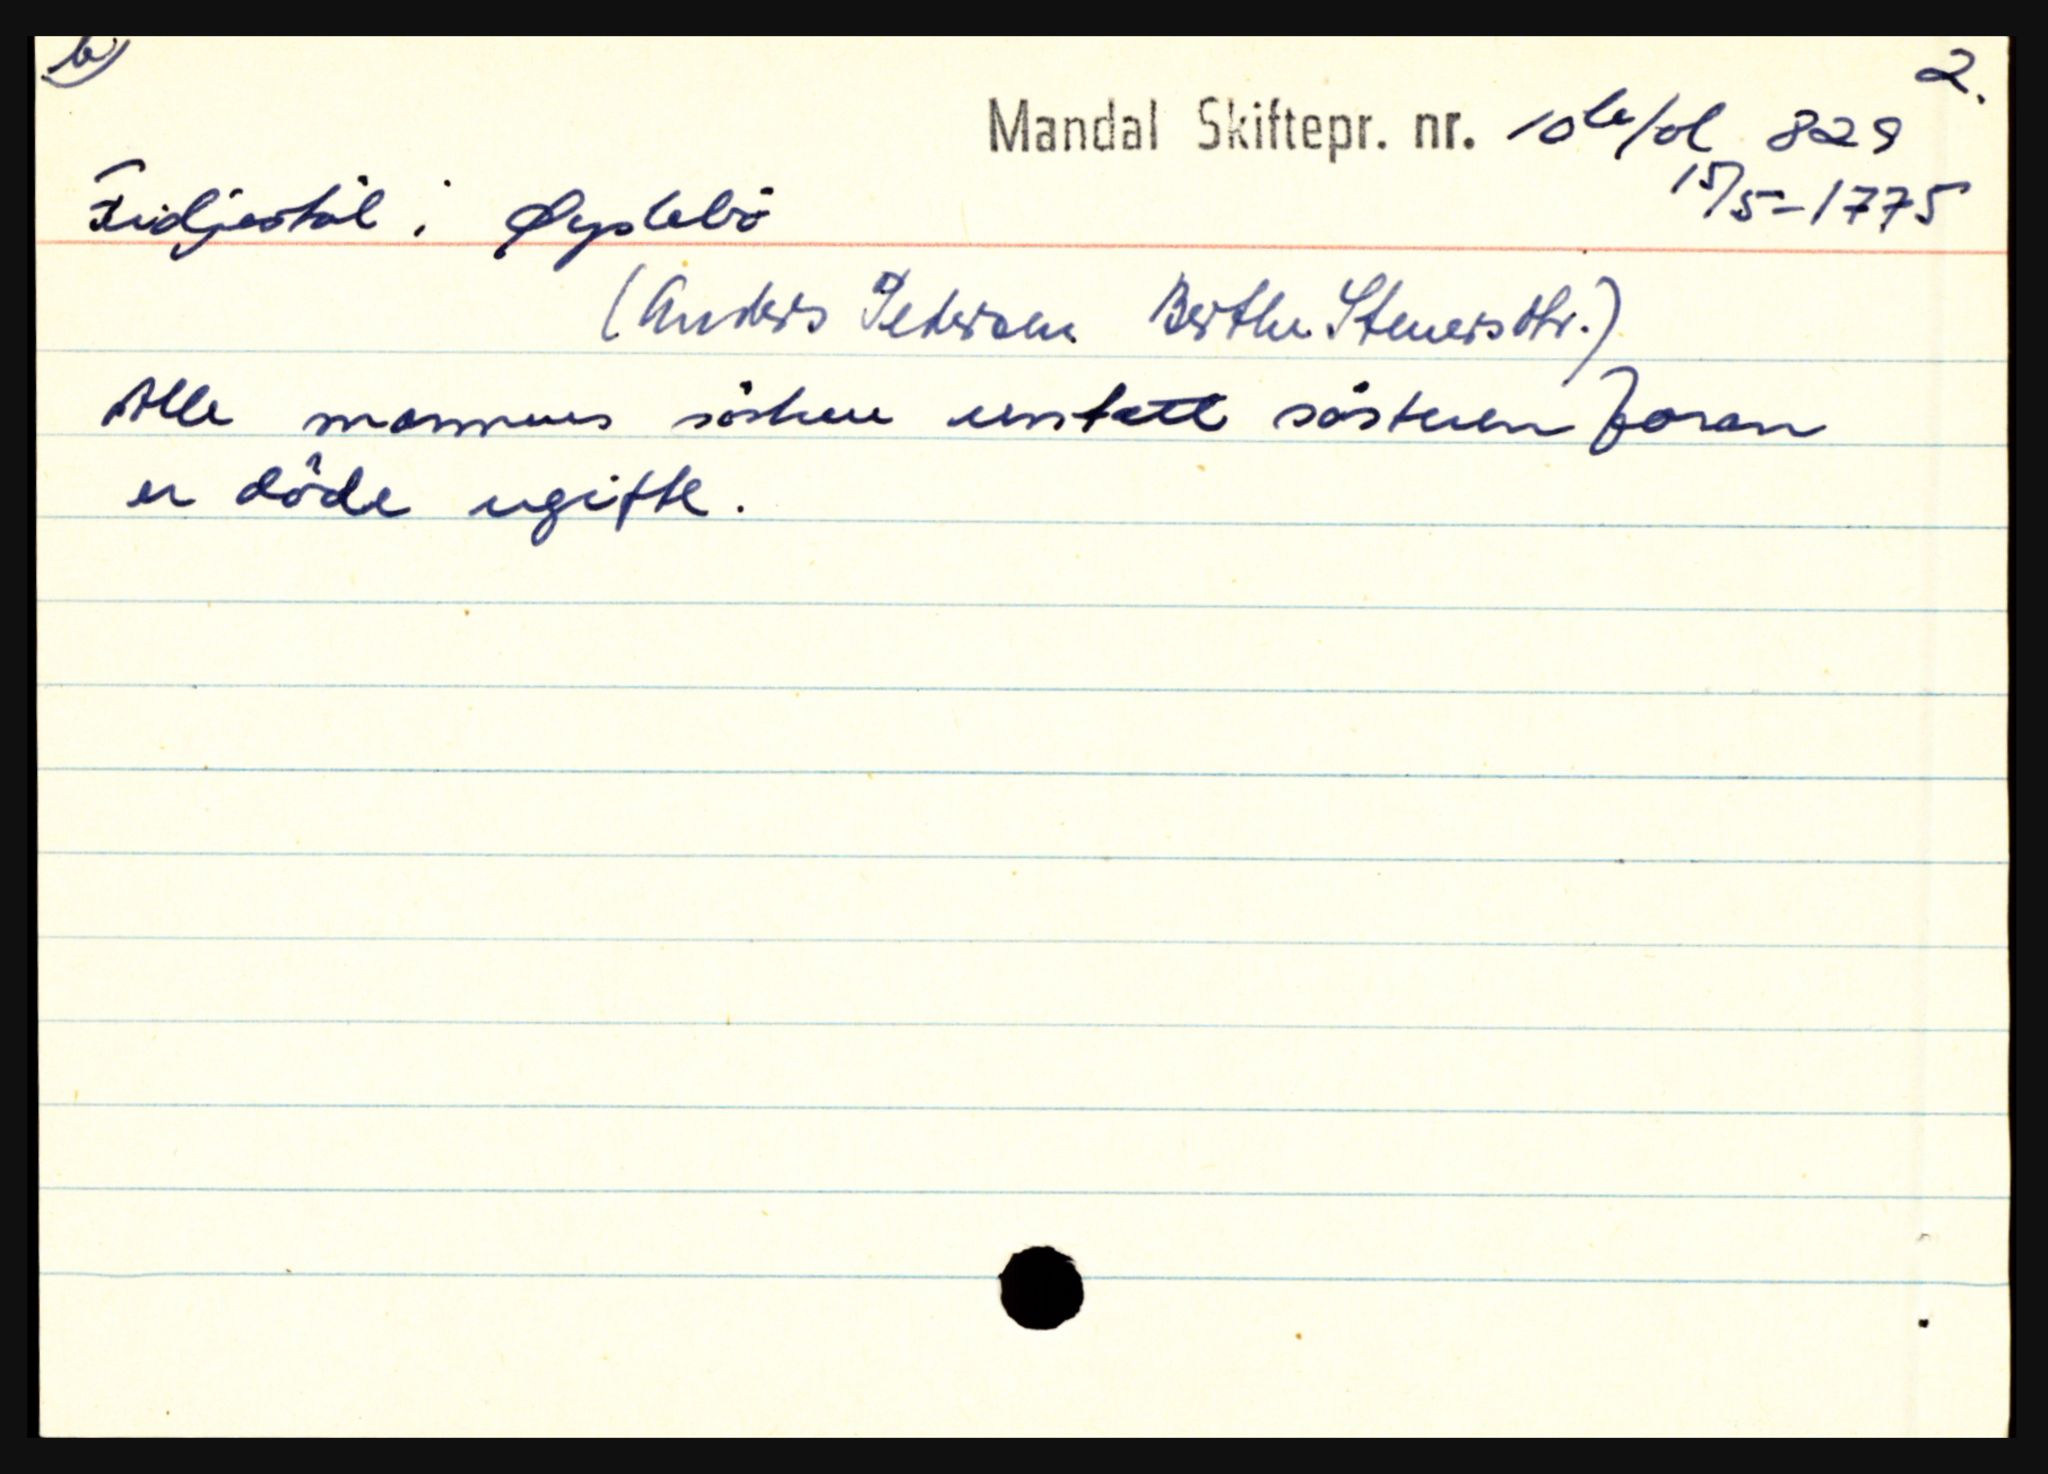 b) 2.
Mandal Skiftepr. nr. 10b/fol 829
15/5-1775
Fidjestöl i Øyslebö
(Anders Pedersen Berthe Stenersdtr.)
Alle mannens sösken untatt sösteren foran
er döde ugifte.